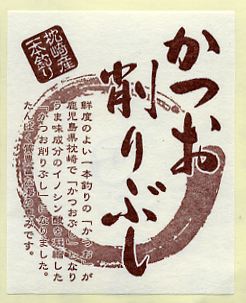 かつお
削りぶし
枕崎産
一本釣り
鮮度のよい一本釣りの「かつお」が
鹿児島県枕崎で「かつおぶし」になり
うま味成分のイノシン酸を凝縮した
「かつお削りぶし」になりました。
たんぱく